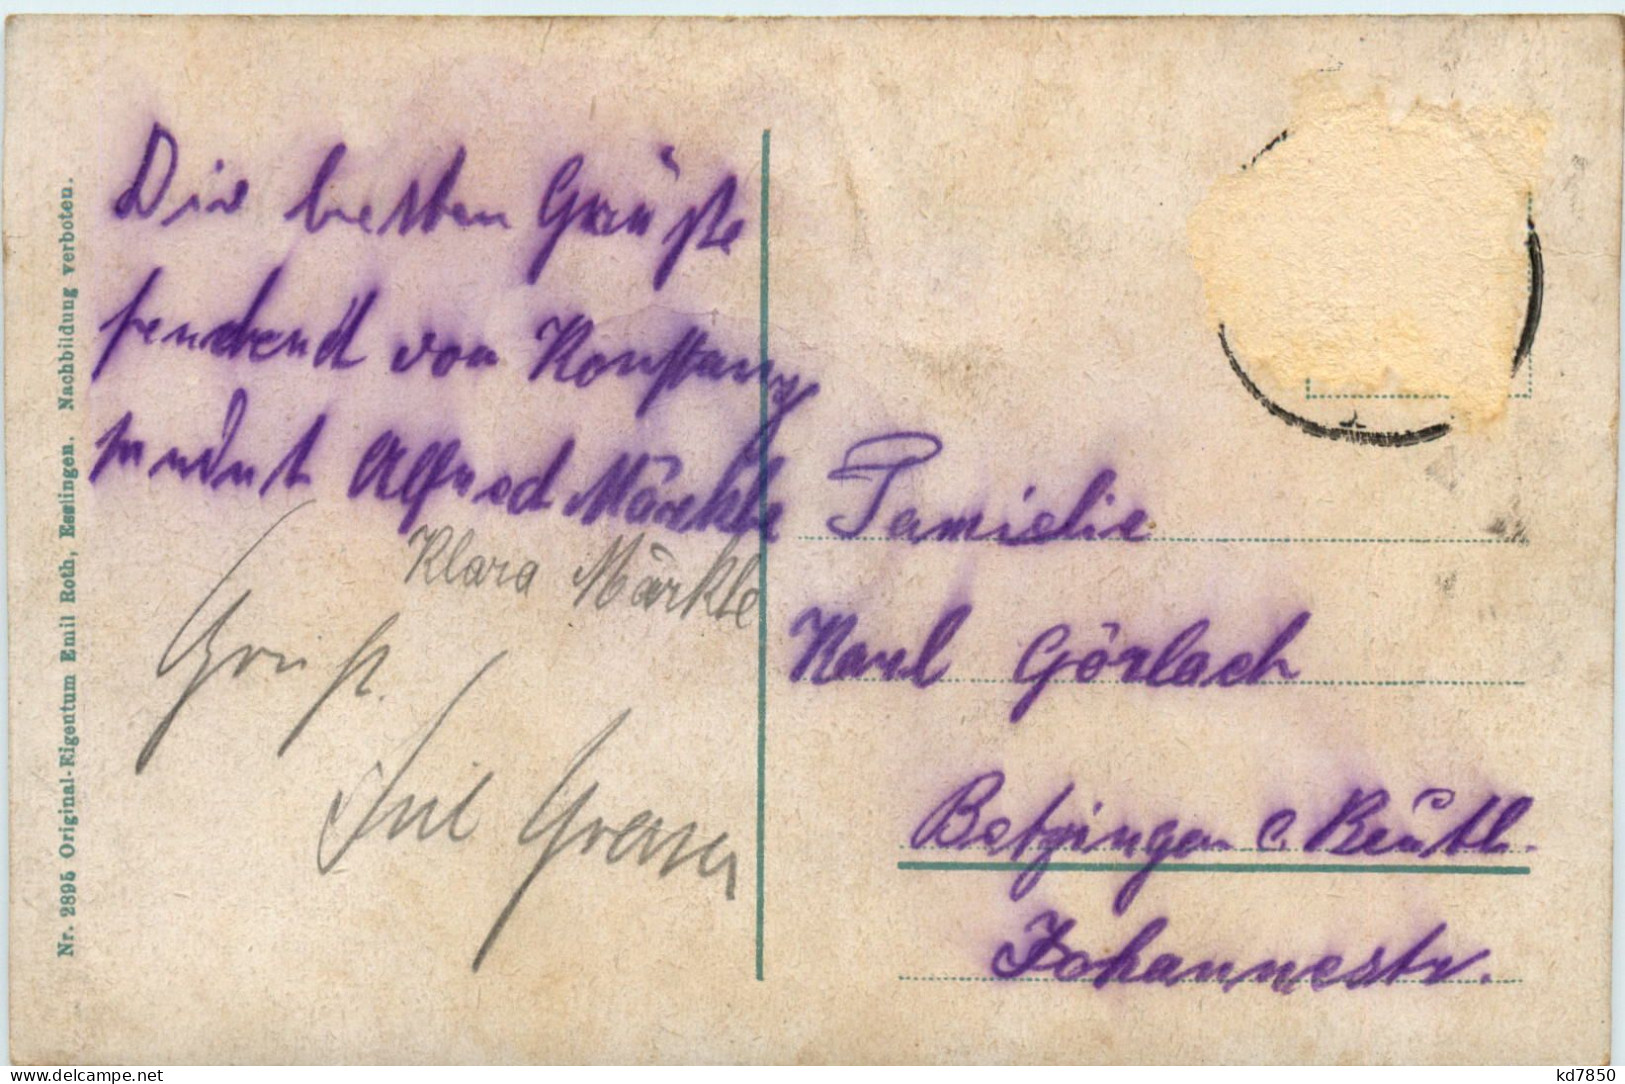 Die besten Grüße
sendend von Konstanz
sendet Alfred Märkle
Klara Märkle
Gruß.
Greser
Familie
Karl Görlach
Betzingen b. Reutl.
Johannestr.
Nr. 2895 Original-Eigentum Emil Roth, Esslingen. Nachbildung verboten.
www.delcampe.net
kd7850